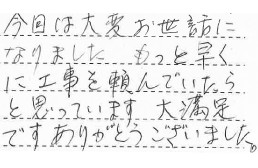 今回は大変お世話に
なりました もっと早く
に工事を頼んでいたら
と思っています 大満足
ですありがとうございました。